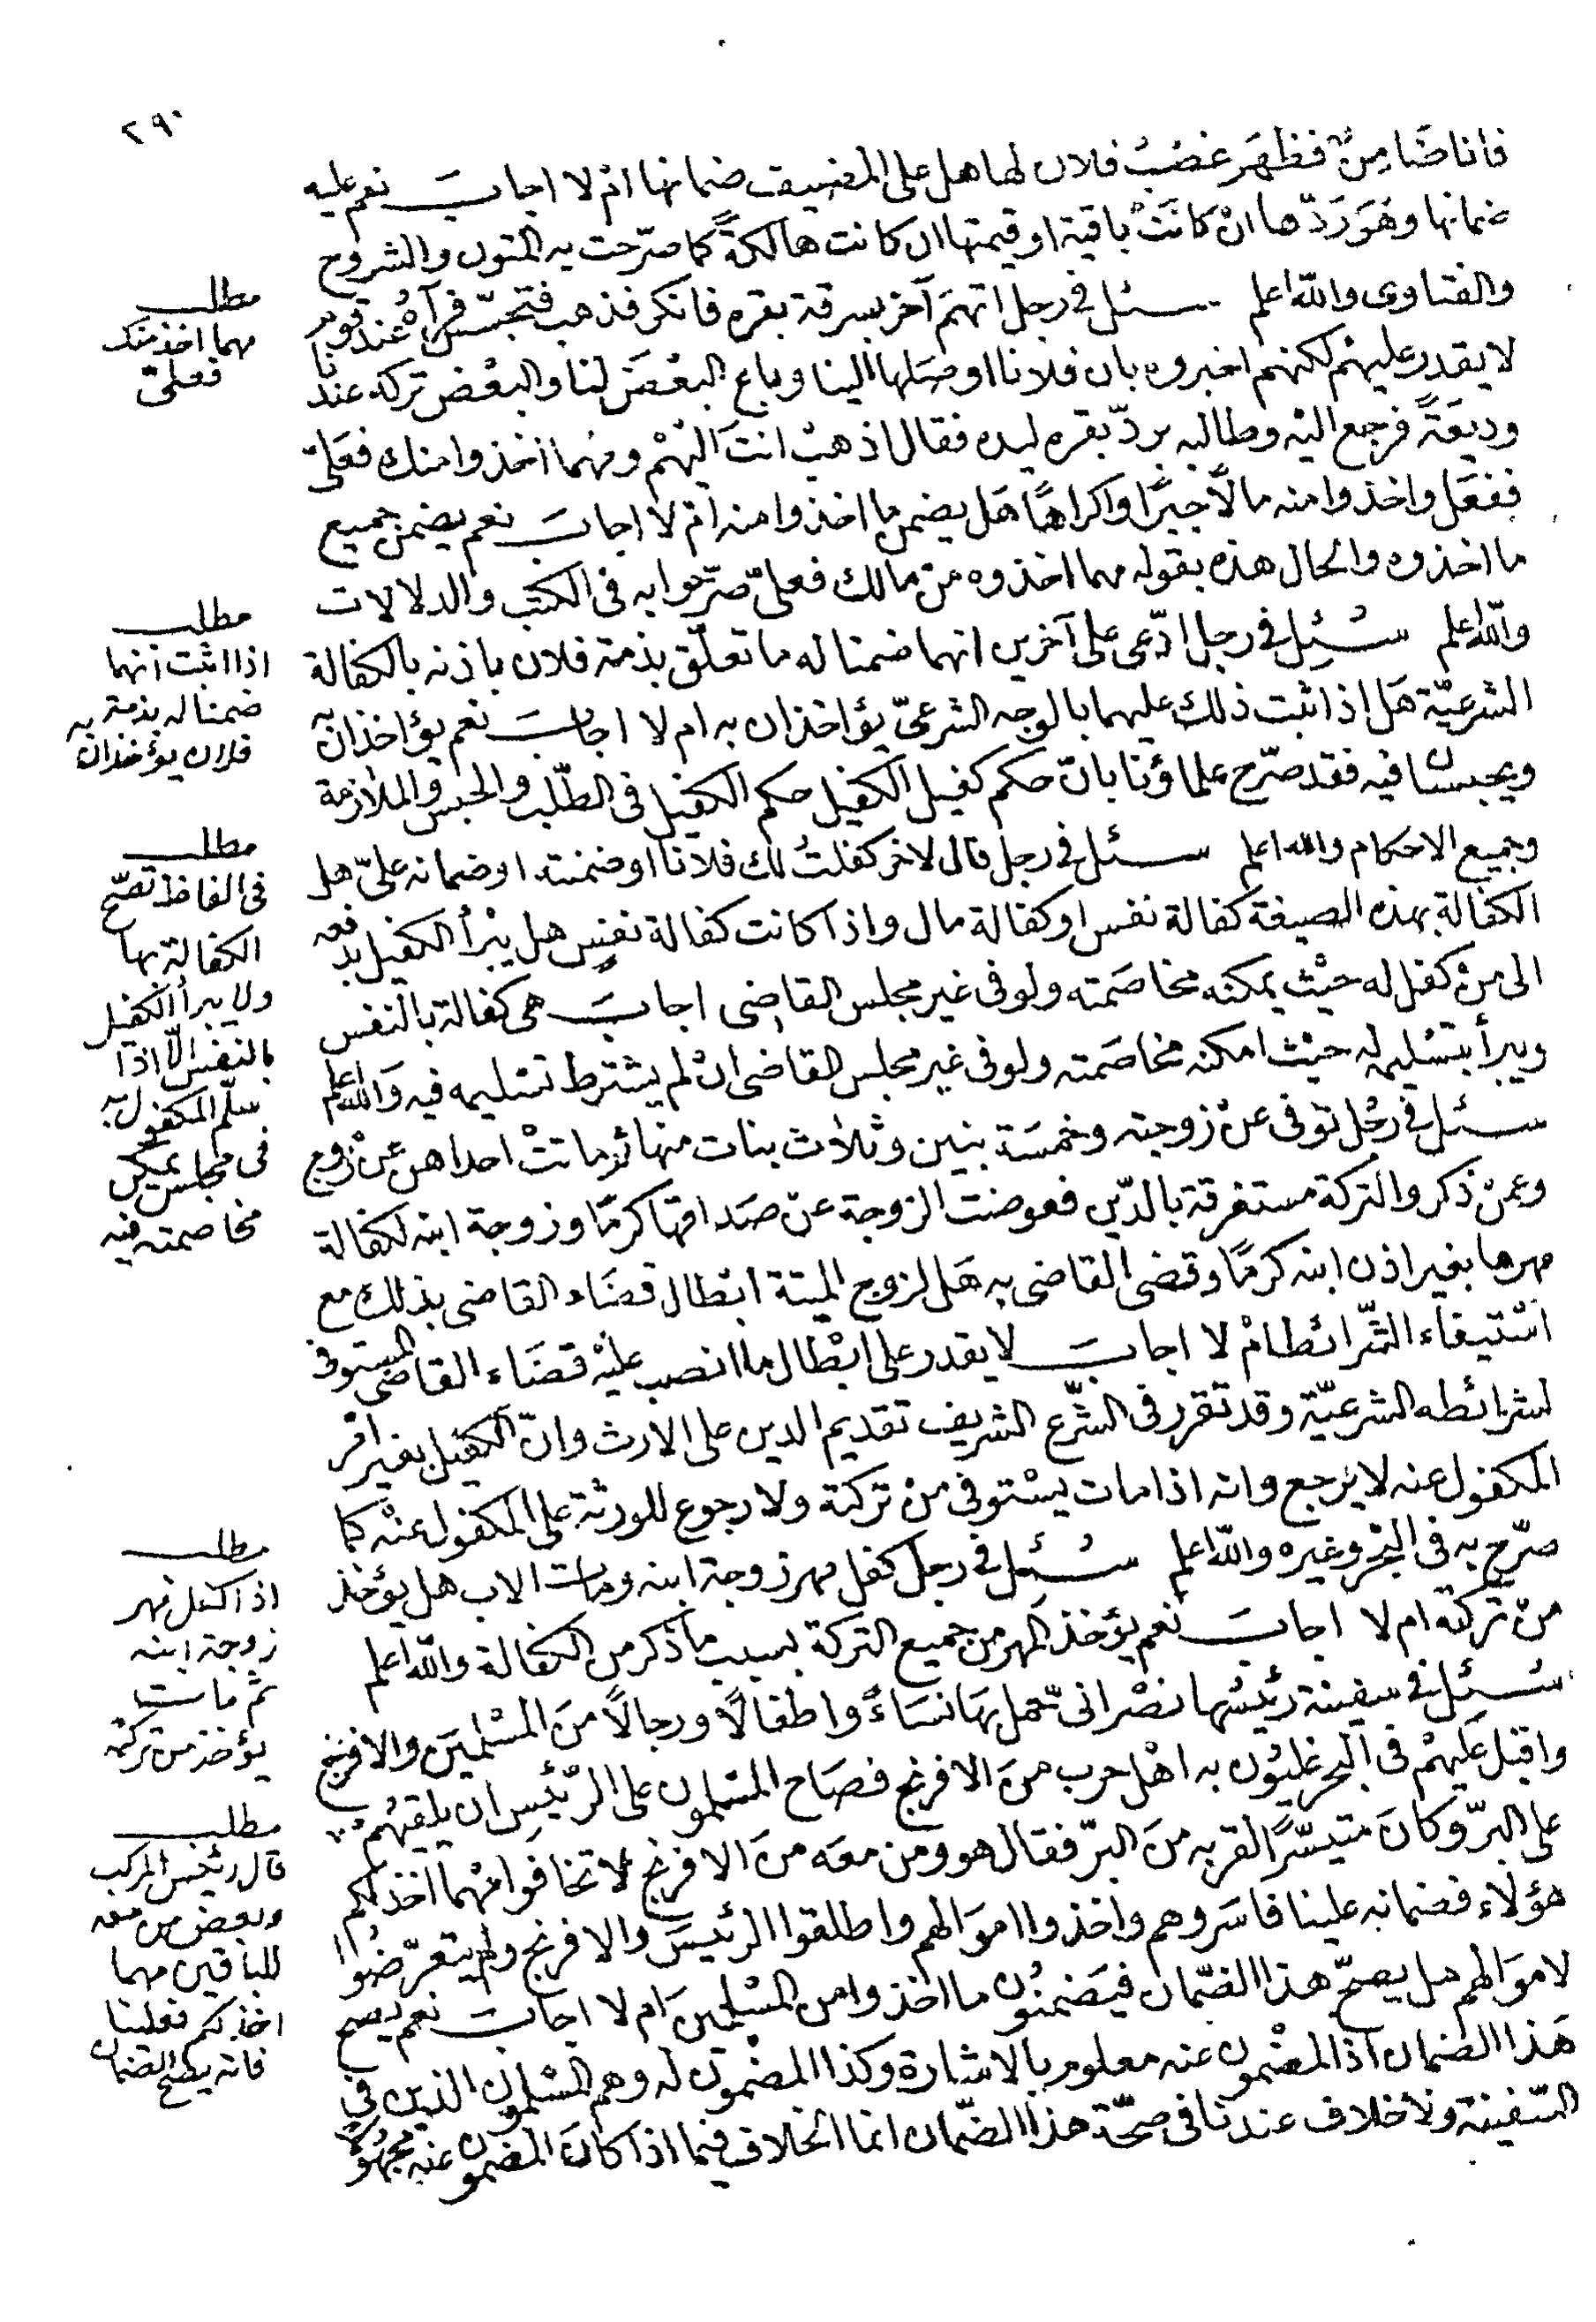 ٢٩٠
فانا ضامن فظهر غصب فلان لها هل على المضيف ضمانها ام لا اجاب نعم عليه
ضمانها وهو ردّها ان كانت باقية او قيمتها ان كانت هالكة كما صرّحت به المتون والشروح
والفتاوى والله اعلم سئل في رجل اتهم آخر بسرقة بقره فانكر فذهب فتجسّس فرآه عند قوم
لا يقدر عليهم لكنهم اخبروه بان فلانا اوصلها الينا وباع البعض لنا والبعض تركه عندنا
وديعة فرجع اليه وطالبه بردّ بقره ليده فقال اذهب انت اليهم ومهما اخذوا منك فعليّ
ففعل واخذوا منه مالا جبرا واكراها هل يضمن ما اخذوا منه ام لا اجاب نعم يضمن جميع
ما اخذوه والحال هذه بقوله مهما اخذوه من مالك فعليّ صرّحوا به في الكتب والدلالات
والله اعلم سئل في رجل ادّعى على آخرين انهما ضمنا له ما تعلّق بذمة فلان باذنه بالكفالة
الشرعيّة هل اذا ثبت ذلك عليهما بالوجه الشرعيّ يؤاخذان به ام لا اجاب نعم يؤاخذان به
ويحبسان فيه فقد صرّح علماؤنا بانّ حكم كفيل الكفيل حكم الكفيل في الطلب والحبس والملازمة
وجميع الاحكام والله اعلم سئل في رجل قال لاخر كفلت لك فلانا او ضمنته او ضمانه عليّ هل
الكفالة بهذه الصيغة كفالة نفس او كفالة مال واذا كانت كفالة نفس هل يبرأ الكفيل بدفعه
الى من كفل له حيث يمكنه مخاصمته ولو في غير مجلس القاضي اجاب هي كفالة بالنفس
ويبرأ بتسليمه له حيث امكنه مخاصمته ولو في غير مجلس القاضي ان لم يشترط تسليمه فيه والله اعلم
سئل في رجل توفى عن زوجته وخمسة بنين وثلاث بنات منها ثم ماتت احداهن عن زوج
وعمن ذكر والتركة مستغرقة بالدّين فعوضت الزوجة عن صداقها كرما وزوجة ابنه لكفالة
مهرها بغير اذن ابنه كرما وقضى القاضي به هل لزوج الميتة ابطال قضاء القاضي بذلك مع
استيفاء الشرائط ام لا اجاب لا يقدر على ابطال ما انصب عليه قضاء القاضي المستوفى
لشرائطه الشرعيّة وقد تقرر في الشرع الشريف تقديم الدين على الارث وانّ الكفيل بغير امر
المكفول عنه لا يرجع وانه اذا مات يستوفى من تركته ولا رجوع للورثة على المكفول عنه كما
صرّح به في البحر وغيره والله اعلم سئل في رجل كفل مهر زوجة ابنه ومات الاب هل يؤخذ
من تركته ام لا اجاب نعم يؤخذ المهر من جميع التركة بسبب ما ذكر من الكفالة والله اعلم
سئل في سفينة رئيسها نصرانيّ حمل بها نساء واطفالا ورجالا من المسلمين والافرنج
واقبل عليهم في البحر غليون به اهل حرب من الافرنج فصاح المسلمون على الرئيس ان يلقيهم
على البرّ وكان متيسّرا لقربه من البرّ فقال هو ومن معه من الافرنج لا تخافوا مهما اخذ لكم
هؤلاء فضمانه علينا فاسروهم واخذوا اموالهم واطلقوا الرئيس والافرنج ولم يتعرّضوا
لاموالهم هل يصحّ هذا الضّمان فيضمنون ما اخذوا من المسلمين ام لا اجاب نعم يصح
هذا الضمان اذ المضمون عنه معلوم بالاشارة وكذا المضمون له وهم المسلمون الذين في
السّفينة ولا خلاف عندنا في صحّة هذا الضّمان انما الخلاف فيما اذا كان المضمون عنه مجهولا
مطلب
مهما اخذ منك
فعليّ
مطلب
اذا اثبت انهما
ضمنا له بذمة
فلان يؤخذان به
مطلب
في الفاظ تصّح
الكفالة بها
ولا يبرأ الكفيل
بالنفس الّا اذا
سلّم المكفول به
في مجلس يمكن
مخاصمته فيه
مطلب
اذا كفل مهر
زوجة ابنه
ثم مات
يؤخذ من تركته
مطلب
قال رئيس المركب
وبعض من معه
للباقين مهما
اخذ لكم فعلينا
فانه يصّح الضمان